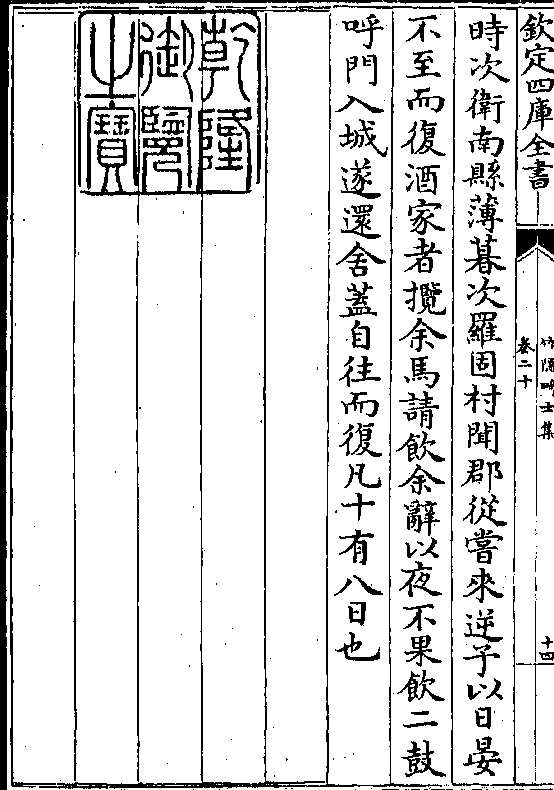 欽定四庫全書
卷二十
十四
時次衛南縣薄暮次羅固村聞郡從嘗來逆予以日晏
不至而復酒家者攬余馬請飲余辭以夜不果飲二鼓
呼門入城遂還舍蓋自往而復凡十有八日也
乾隆御覽之寶